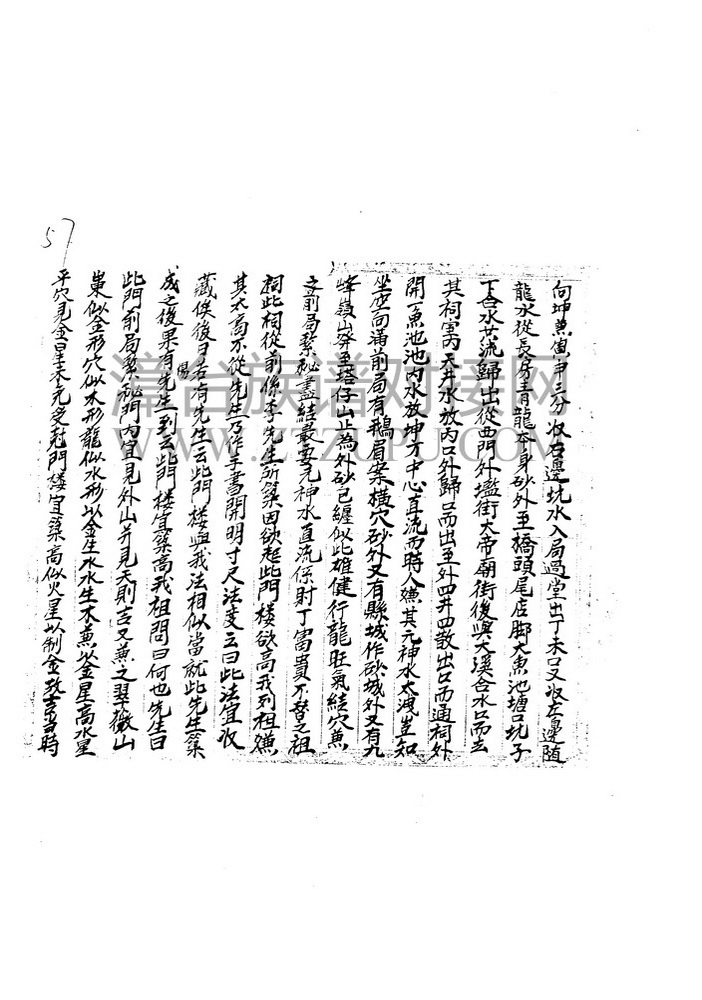 57
向坤兼寅申三分收右邊坑水入局過堂出丁未口又收左邊随
龍水從長房青龍本身砂外至橋頭尾店脚大魚池塘口坑子
下合水女流歸出從西門外壩街大帝廟街後與大溪合水口而去
其祠宇內天井水放內口外歸口而出至外四井四散出口而通祠外
開一魚池池內水放坤方中心直流而時人嫌其元神水太洩豈知
坐空向滿前局有鵝眉案橫穴砂外又有縣城作砂城外又有九
峰嶺山發至塔仔山止為外砂已纏似此雄健行龍旺氣結穴兼
之前局緊秘盡結最要元神水直流保財丁富貴不替之祖
祠此祠從前係李先生所築因欲起此門樓欲高我列祖嫌
其太高不從先生乃作手書開明寸尺法度云曰此法宜收
藏俟後日若有楊先生云此門樓與我法相似當就此先生築
成之後果有先生到云此門樓宜築高我祖問曰何也先生曰
此門前局緊秘門內宜見外山并見天則吉又兼之翠微山
巢似金形穴似木形龍似水形以金生水水生木兼以金星高水星
平穴見金星木尅門樓宜築高似火星以制金救主當時
章台族譜對接网
WWW.ZTZUPU.COM